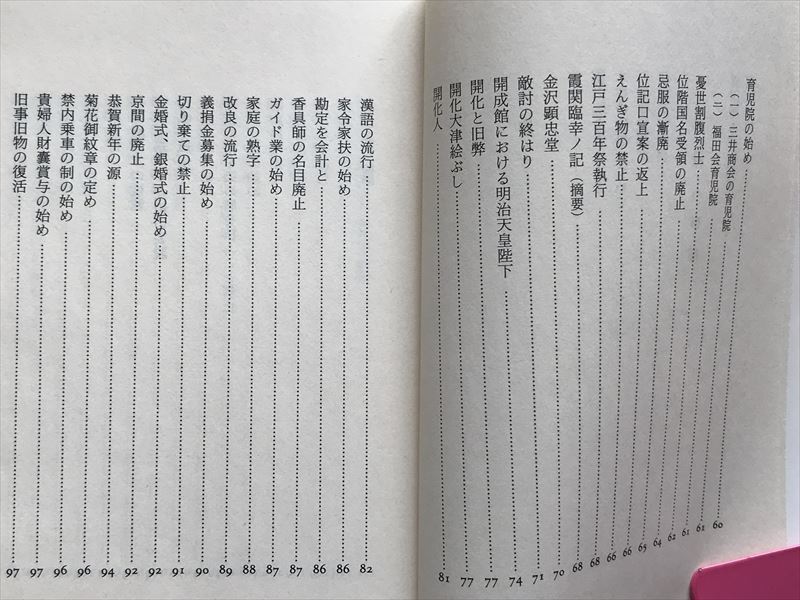 育児院の始め……60
（一）三井商会の育児院……61
（二）福田会育児院……61
憂世割腹烈士……62
位階国名受領の廃止……64
忌服の漸廃……65
位記口宣案の返上……66
えんぎ物の禁止……66
江戸三百年祭執行……68
霞関臨幸ノ記（摘要）……68
金沢顕忠堂……70
敵討の終はり……71
開成館における明治天皇陛下……74
開化と旧弊……77
開化大津絵ぶし……77
開化人……81
漢語の流行……82
家令家扶の始め……86
勘定を会計と……86
香具師の名目廃止……87
ガイド業の始め……87
家庭の熟字……88
改良の流行……89
義捐金募集の始め……90
切り棄ての禁止……91
金婚式、銀婚式の始め……92
京間の廃止……92
恭賀新年の源……94
菊花御紋章の定め……96
禁内乗車の制の始め……96
貴婦人財嚢賞与の始め……97
旧事旧物の復活……97